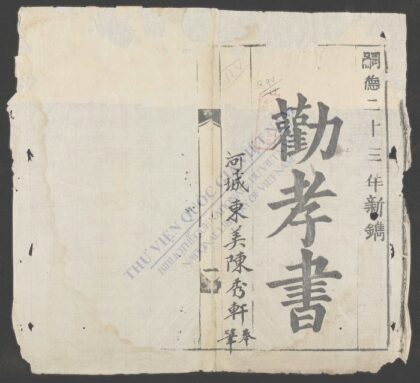 嗣德二十三年新鐫
勸孝書
河城東美陳秀軒奉
筆
THƯ VIỆN QUỐC GIA VIỆT NAM
BIBLIOTHÈQUE NATIONALE DU VIETNAM
NATIONAL LIBRARY OF VIETNAM